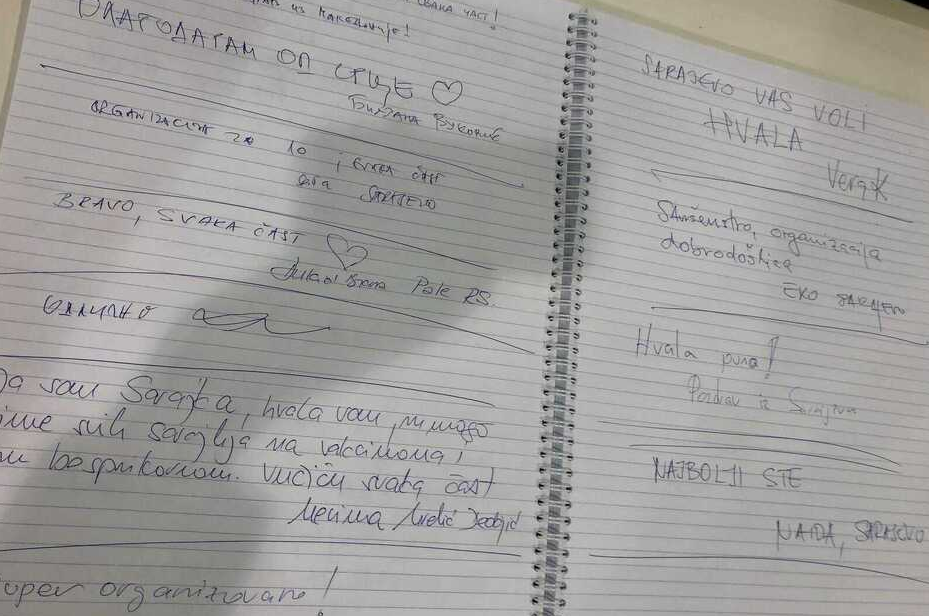 СВАКА ЧАСТ!
из Македоније!
БЛАГОДАРАМ ОД СРЦЕ
Биљана Вуковић
ORGANIZACIJA ZA 10, SVAKA ČAST
SARAJEVO
BRAVO, SVAKA ČAST
Pale RS.
ОДЛИЧНО
Ja sam Sarajka, hvala vam mnogo
ime svih sarajlija na vakcinama,
Vučiću svaka čast
Merima
Super organizovano!
SARAJEVO VAS VOLI
HVALA
Vera K
organizacija
dobrodošlica
SARAJEVO
Hvala puno!
Pozdrav iz Sarajeva
NAJBOLJI STE
NAIDA, SARAJEVO